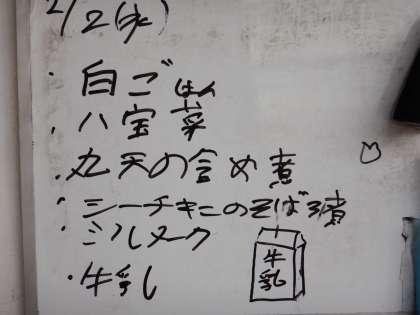 2/2(水)
・白ごはん
・八宝菜
・丸天の含め煮
・シーチキンのそぼろ煮
・ミルメーク
・牛乳
牛乳